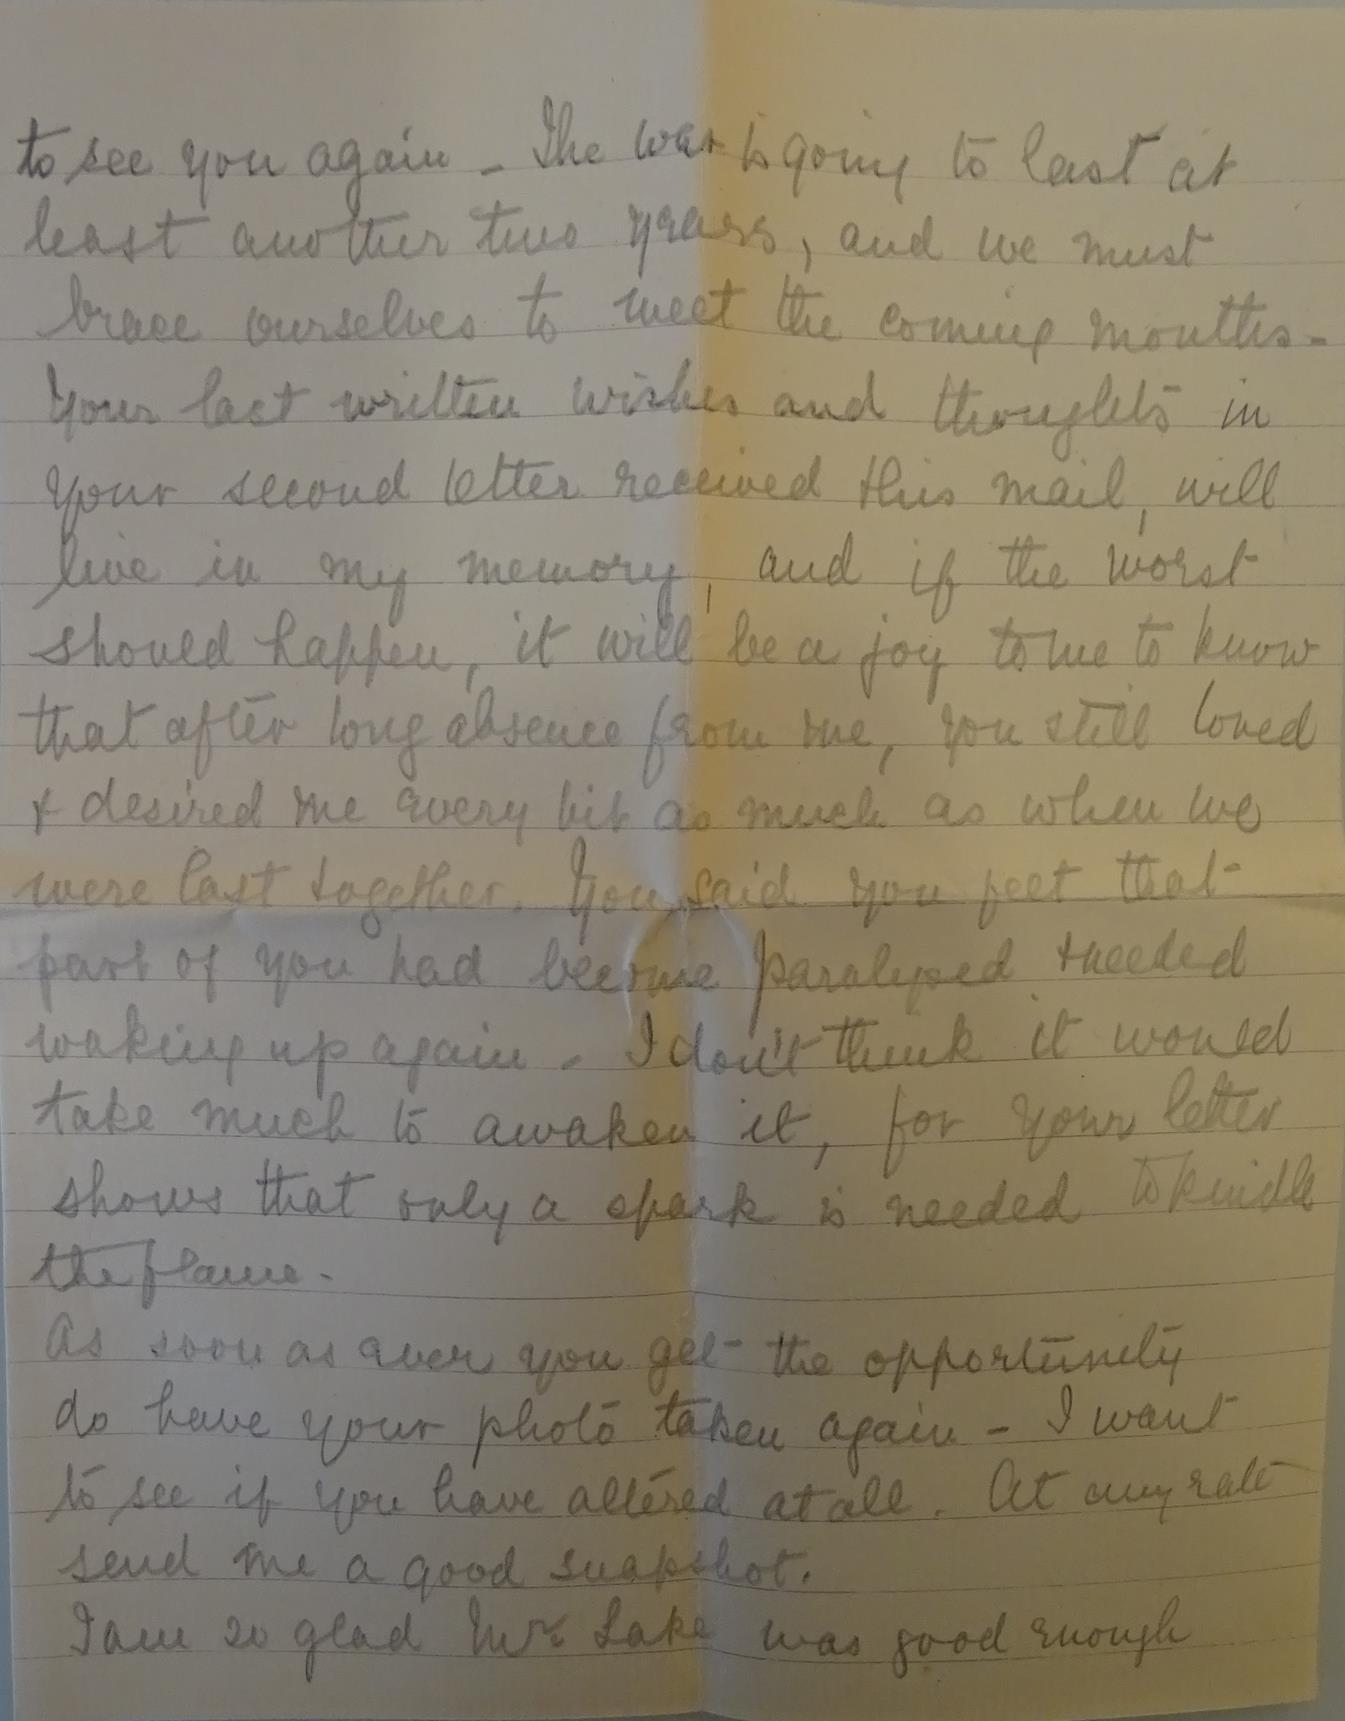 to see you again - The war is going to last at
least another two years, and we must
brace ourselves to meet the coming months -
Your last written wishes and thoughts in
your second letter received this mail, will
live in my memory, and if the worst
should happen, it will be a joy to me to know
that after long absence from me, you still loved
& desired me every bit as much as when we
were last together. You said you feel that
part of you had become paralysed & needed
waking up again - I don't think it would
take much to awaken it, for your letter
shows that only a spark is needed to kindle
the flame -
As soon as ever you get the opportunity
do have your photo taken again - I want
to see if you have altered at all. At any rate
send me a good snapshot.
I am so glad Lake was good enough